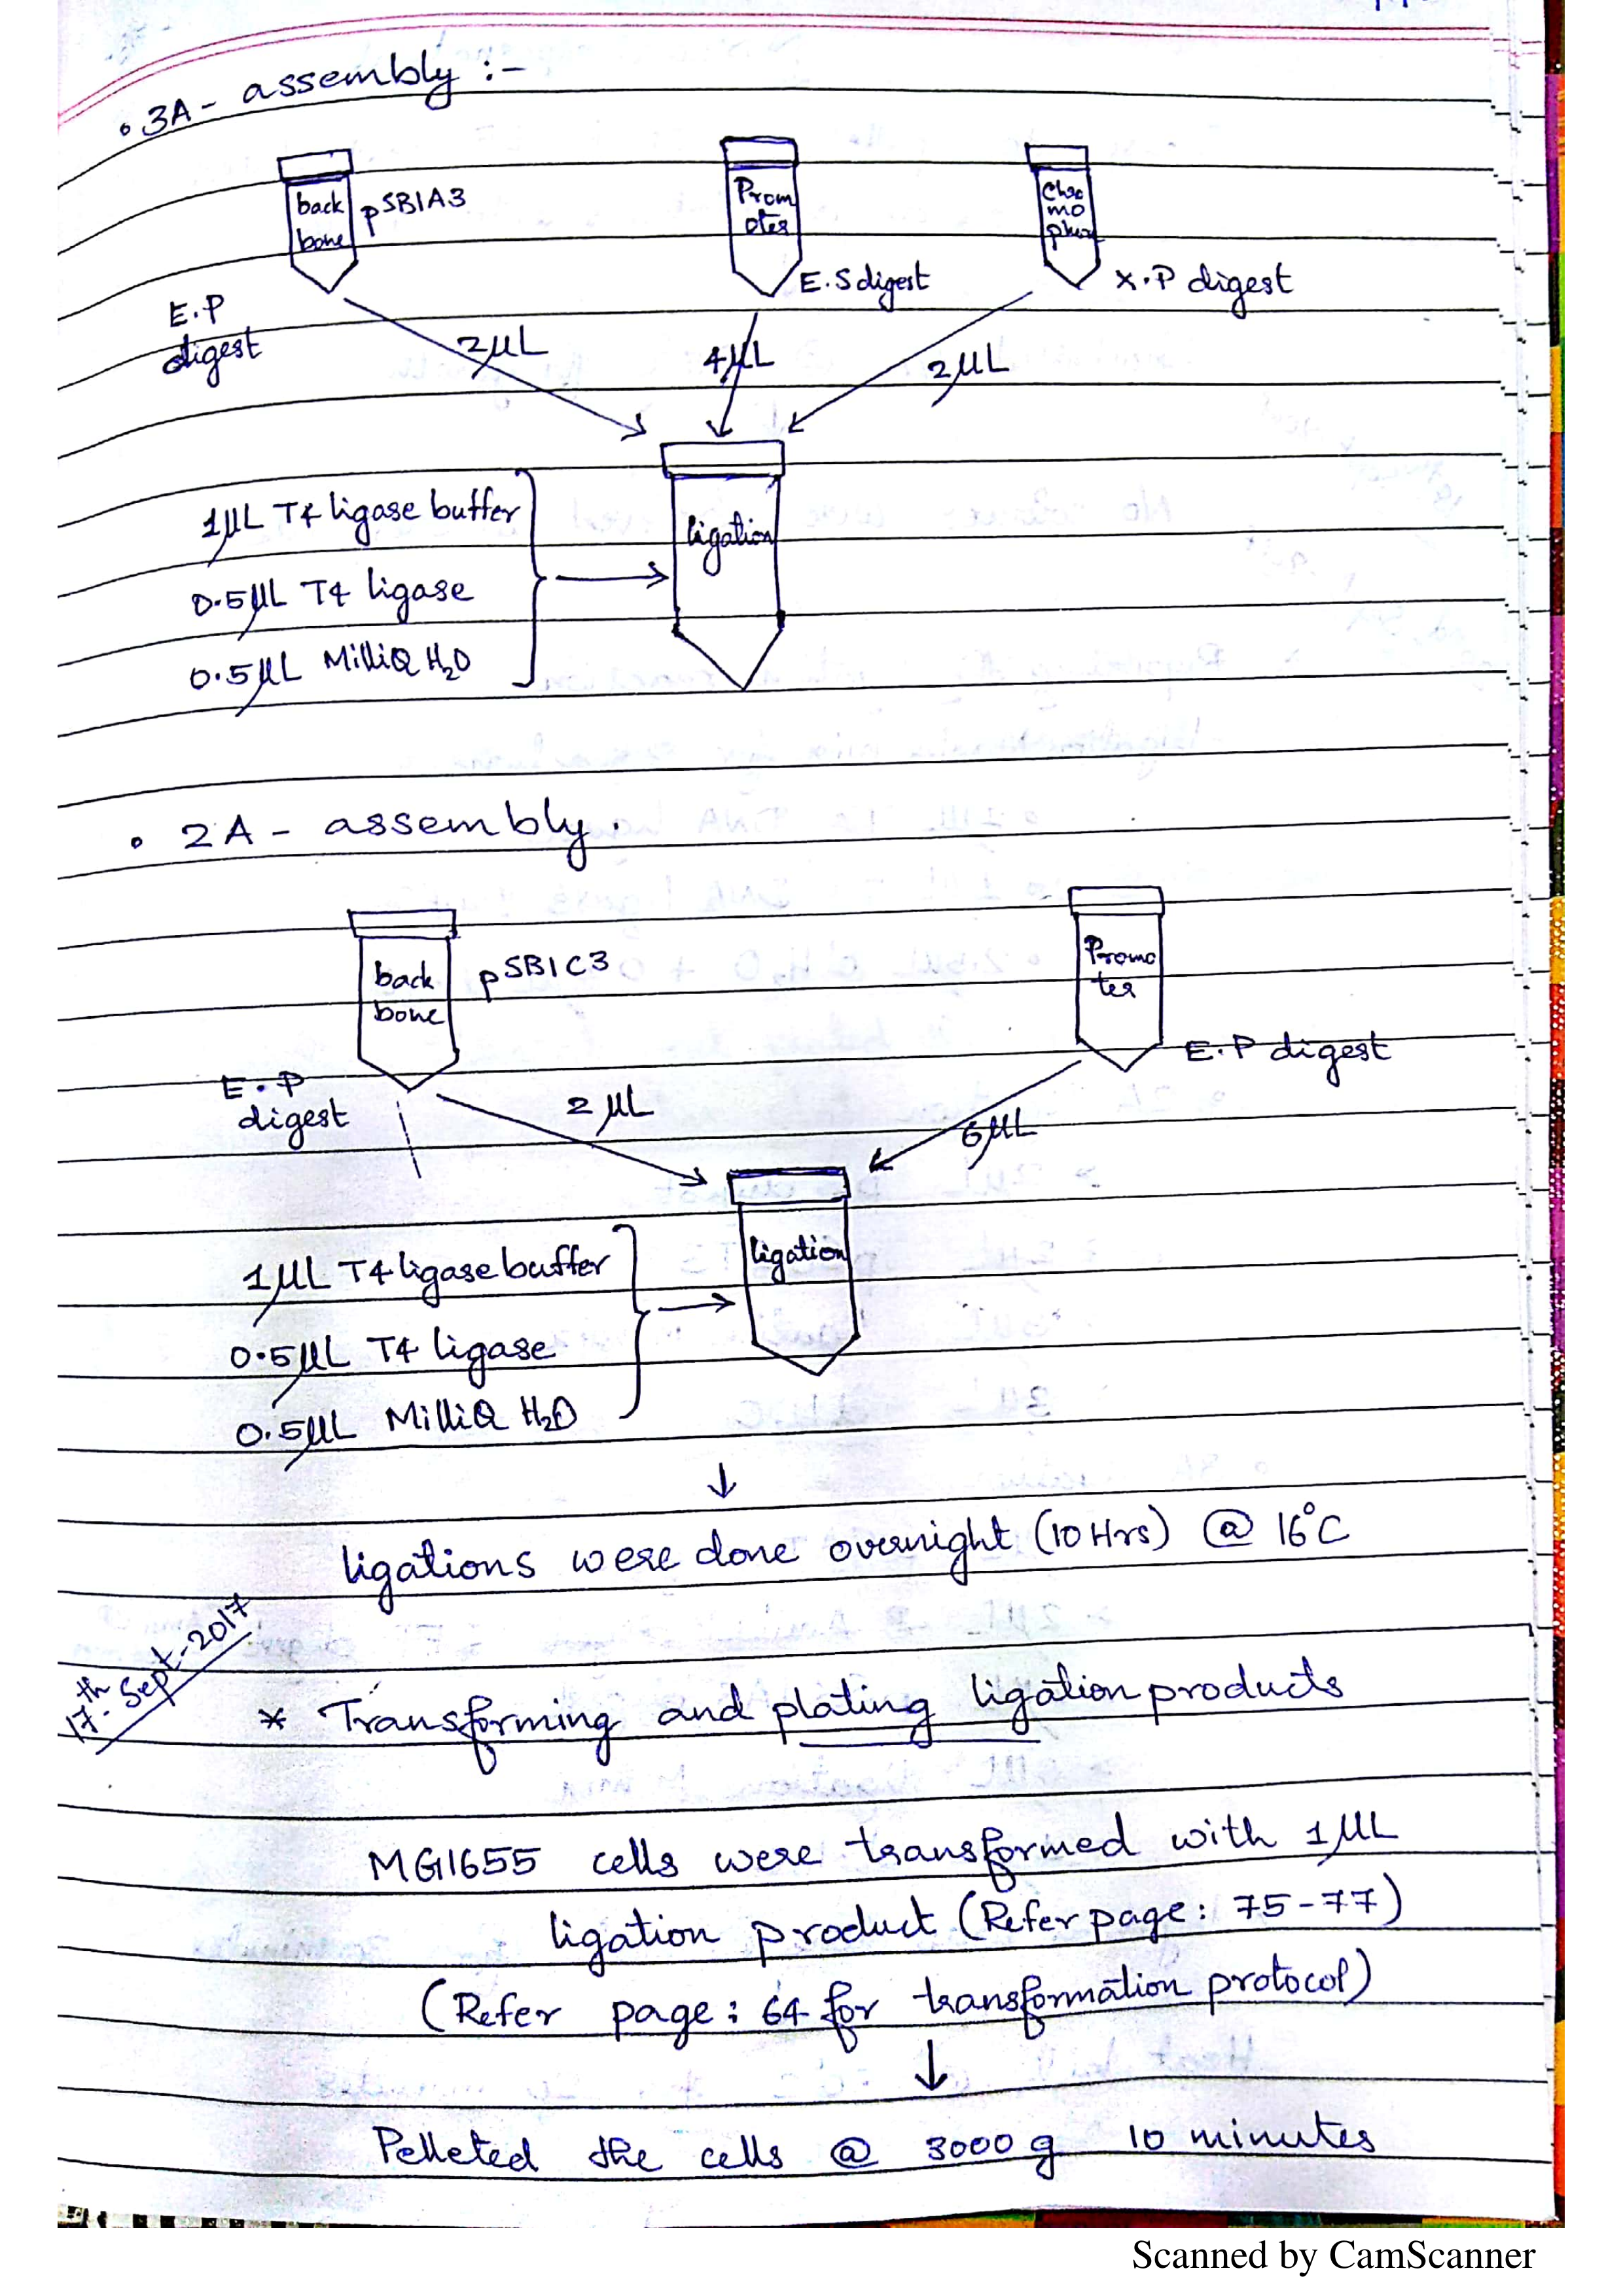 • 3A - assembly :-
back bone
pSB1A3
Prom oter
Chro mo phore
E.P digest
E.S digest
X.P digest
2µL
4µL
2µL
1µL T4 ligase buffer
0.5µL T4 ligase
0.5µL MilliQ H₂O
ligation
• 2A - assembly.
back bone
pSB1C3
Promo ter
E.P digest
E.P digest
2 µL
6µL
1µL T4 ligase buffer
0.5µL T4 ligase
0.5µL MilliQ H₂O
ligation
↓
ligations were done overnight (10 Hrs) @ 16°C
17th-Sept-2017
* Transforming and plating ligation products
MG1655 cells were transformed with 1µL
ligation product (Refer page: 75-77)
(Refer page: 64 for transformation protocol)
↓
Pelleted the cells @ 3000 g 10 minutes
Scanned by CamScanner